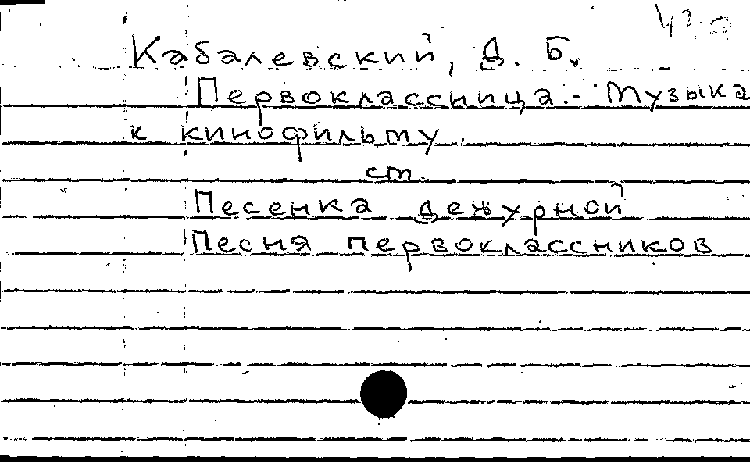 Кабалевский, Д. Б.
Первоклассница.- Музыка
к кинофильму.
ст.
Песенка дежурной
Песня первоклассников